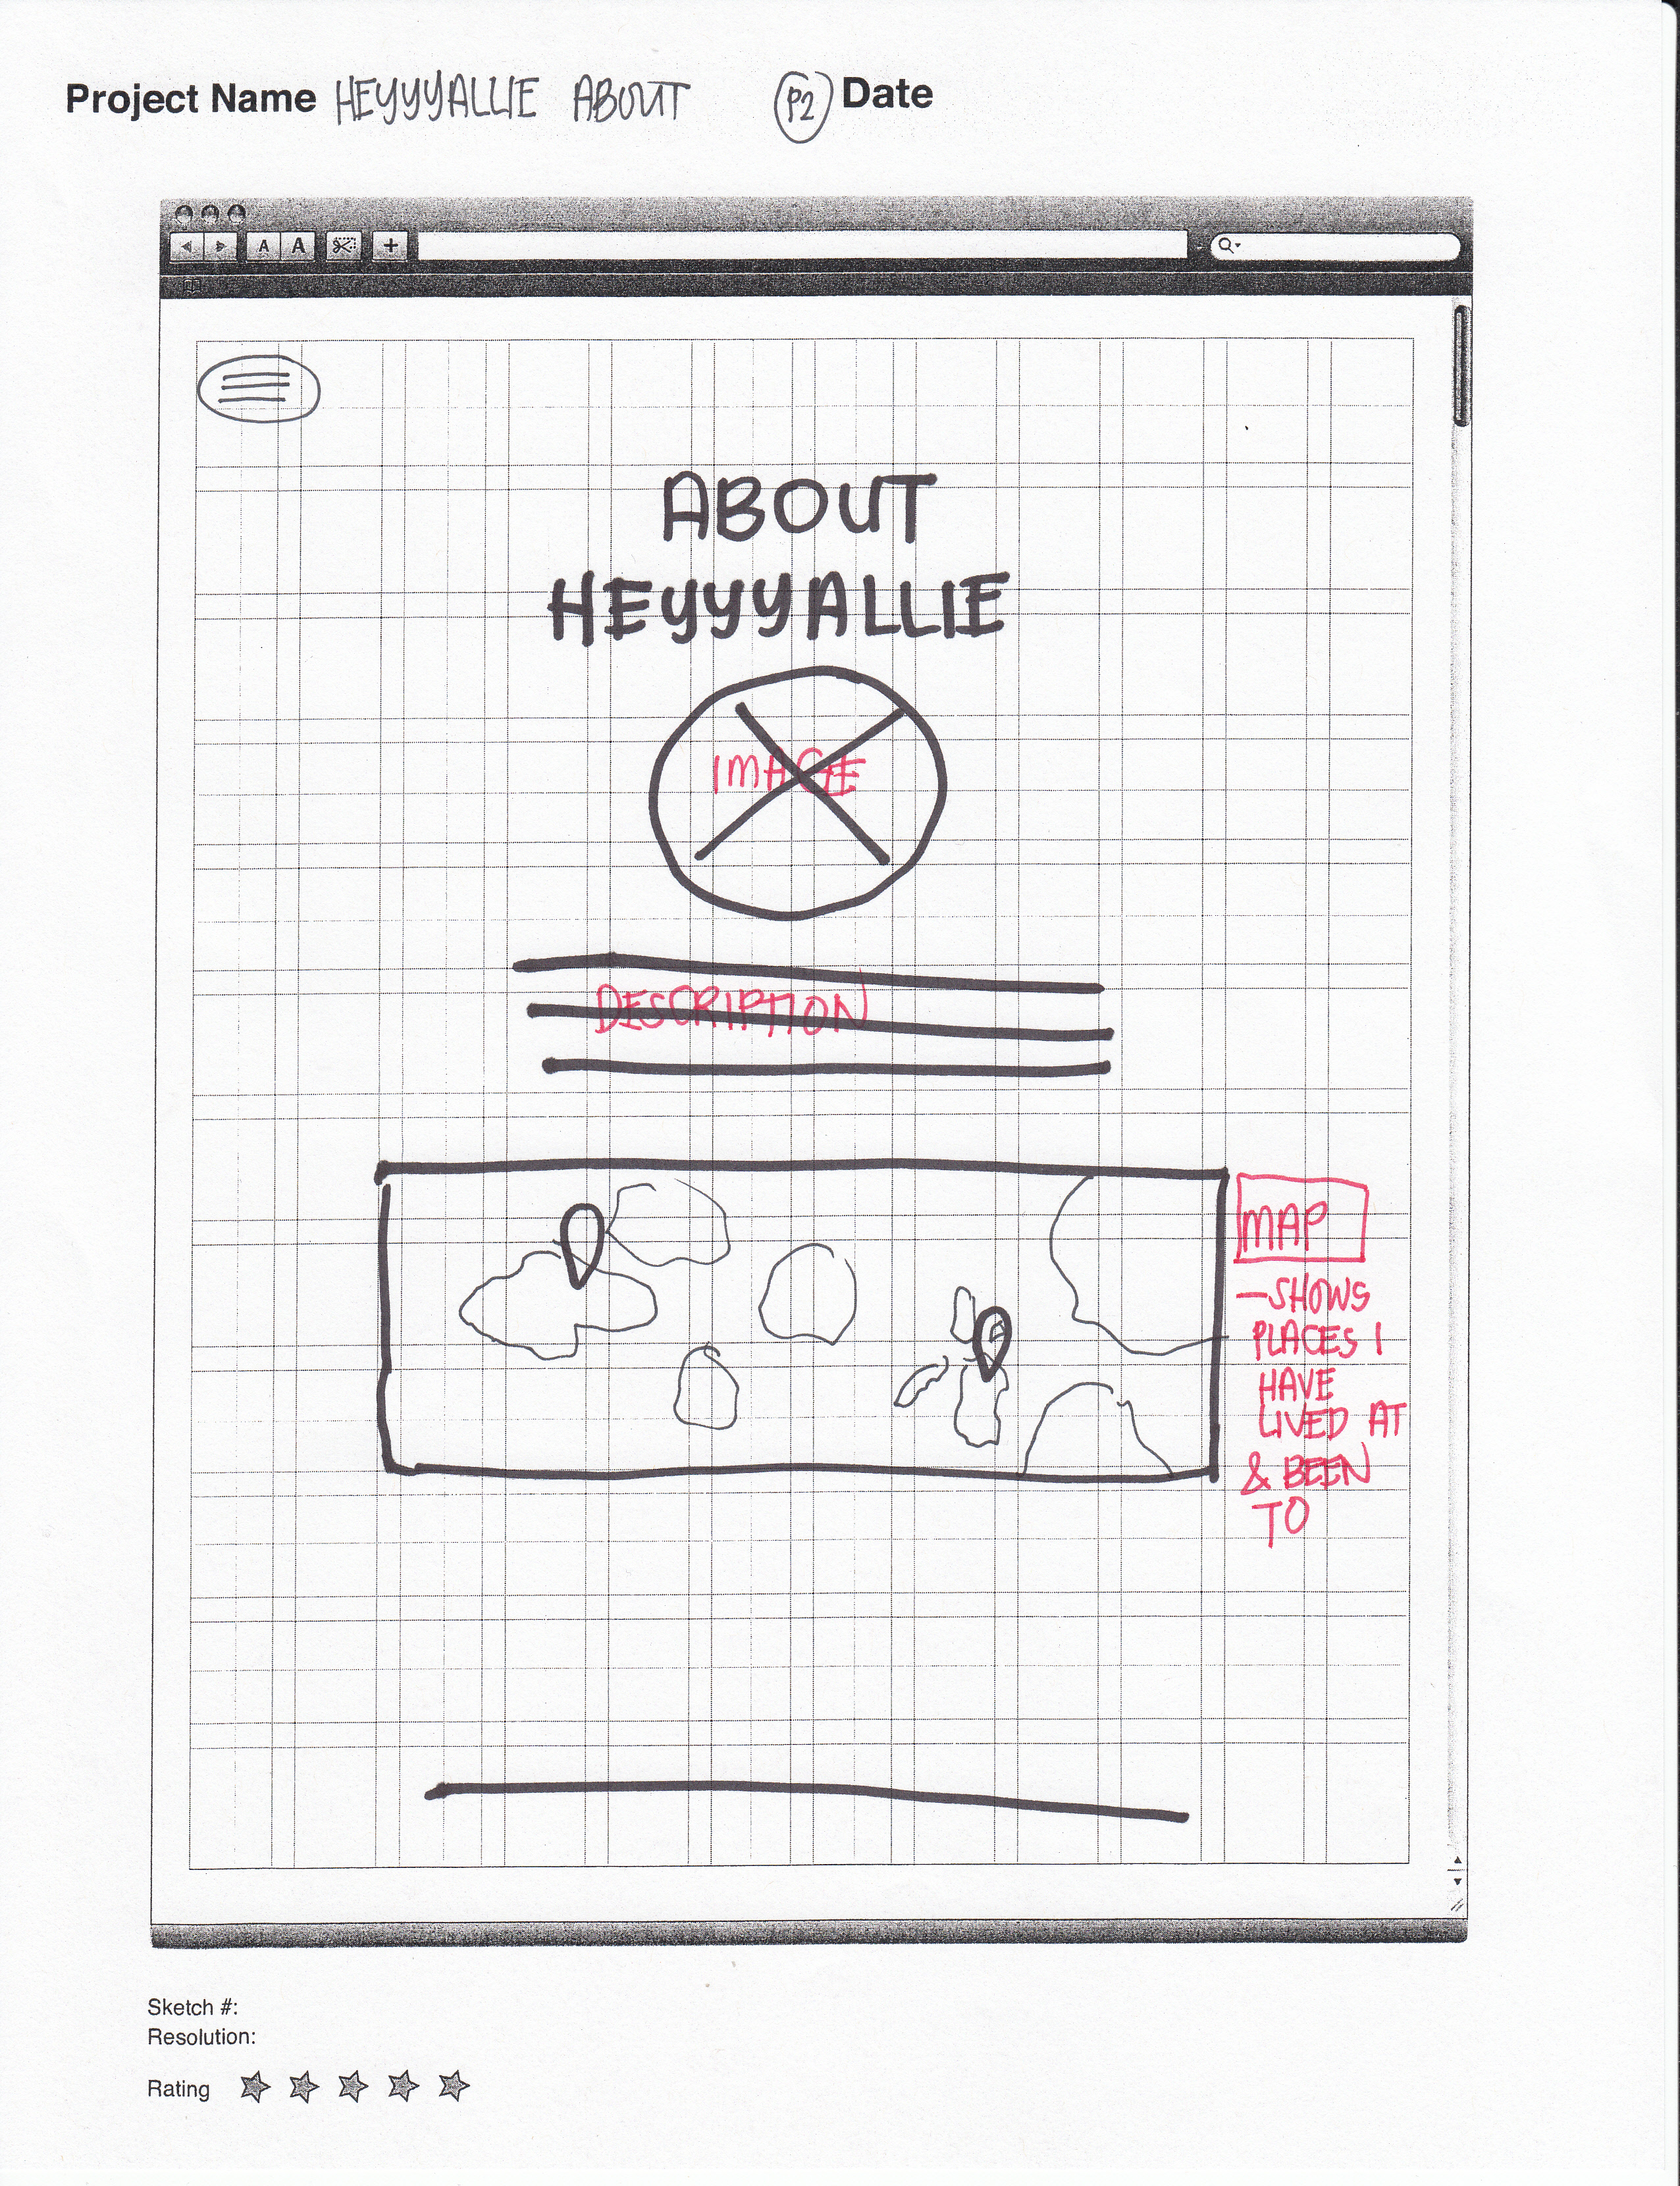 Project Name HEYYYALLIE ABOUT P2 Date
A A +
ABOUT
HEYYYALLIE
IMAGE
DESCRIPTION
MAP
— SHOWS
PLACES I
HAVE
LIVED AT
& BEEN
TO
Sketch #:
Resolution:
Rating